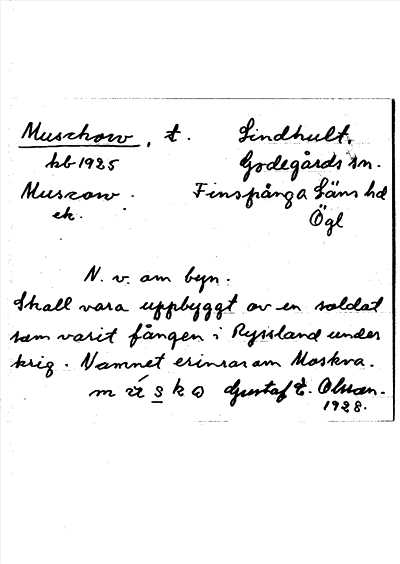 Muschow, t. Lindhult,
kb 1925 Godegårds sn.
Muscow. Finspånga Läns hd
ek. Ögl
N. v. om byn.
Skall vara uppbyggt av en soldat
som varit fången i Ryssland under
krig. Namnet erinrar om Moskva.
Gustaf E. Olsson.
1928.